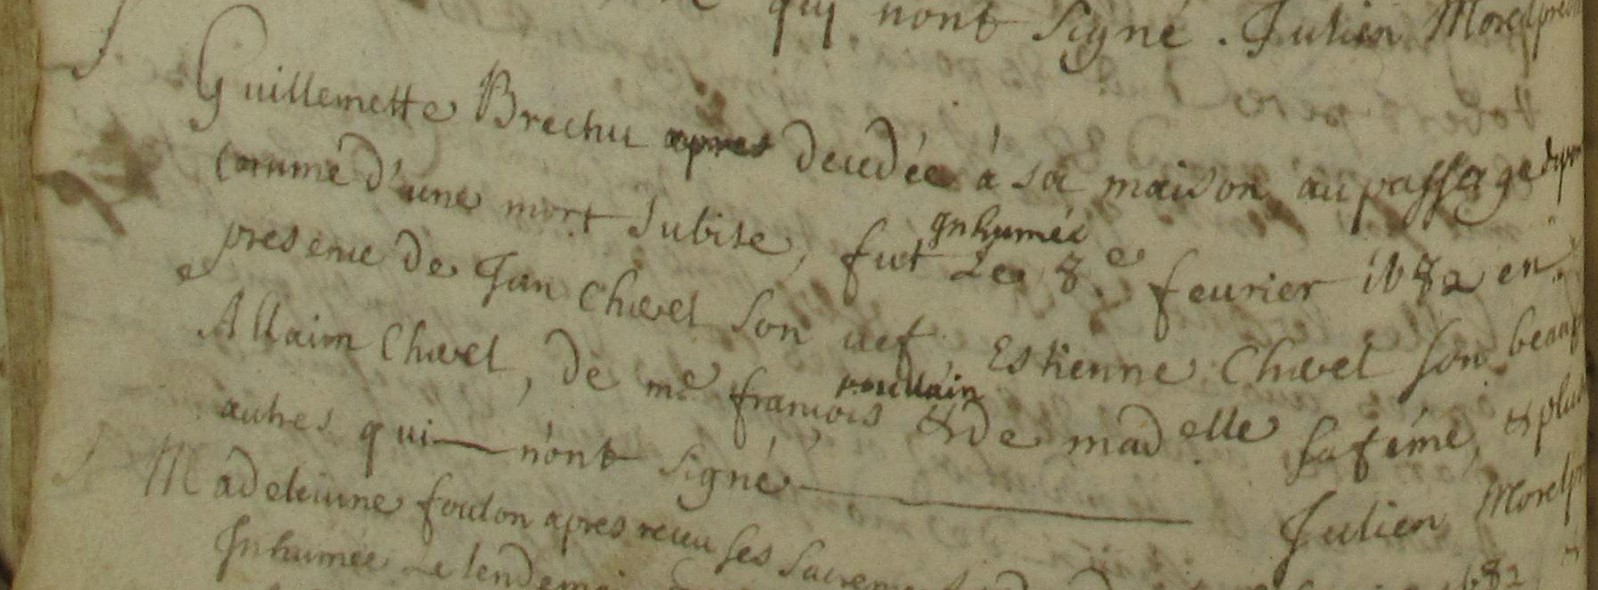 qui nont Signé. Julien Morel
Guillemette Brechu apres decedée à sa maison au passage
comme d'une mort subite, fut Inhumée Le 8.e feurier 1682 en
presence de Jan Chevel son uef, Estienne Chevel son beau
Allain Chevel, de me francois poullain & de madelle sa féme, & plus
autres qui nont signé Julien Morel
Madeleinne foulon apres receu ses Sacremen 1682
Inhumée Le lendemain